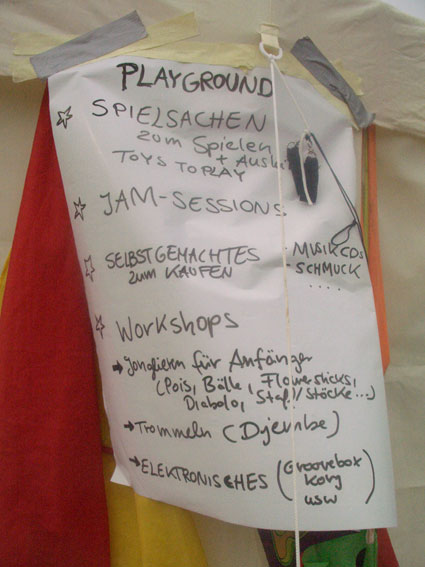 PLAYGROUND
SPIELSACHEN
zum Spielen
+
TOYS TO PLAY
JAM-SESSIONS
SELBSTGEMACHTES - MUSIKCDs
zum KAUFEN - SCHMUCK
....
WORKSHOPS
→ Jonglieren für Anfänger
(Pois, Bälle, Flowersticks,
Diabolo, Staf// Stöcke...)
→ Trommeln (Djembe)
→ ELEKTRONISCHES (Groovebox
Korg
usw